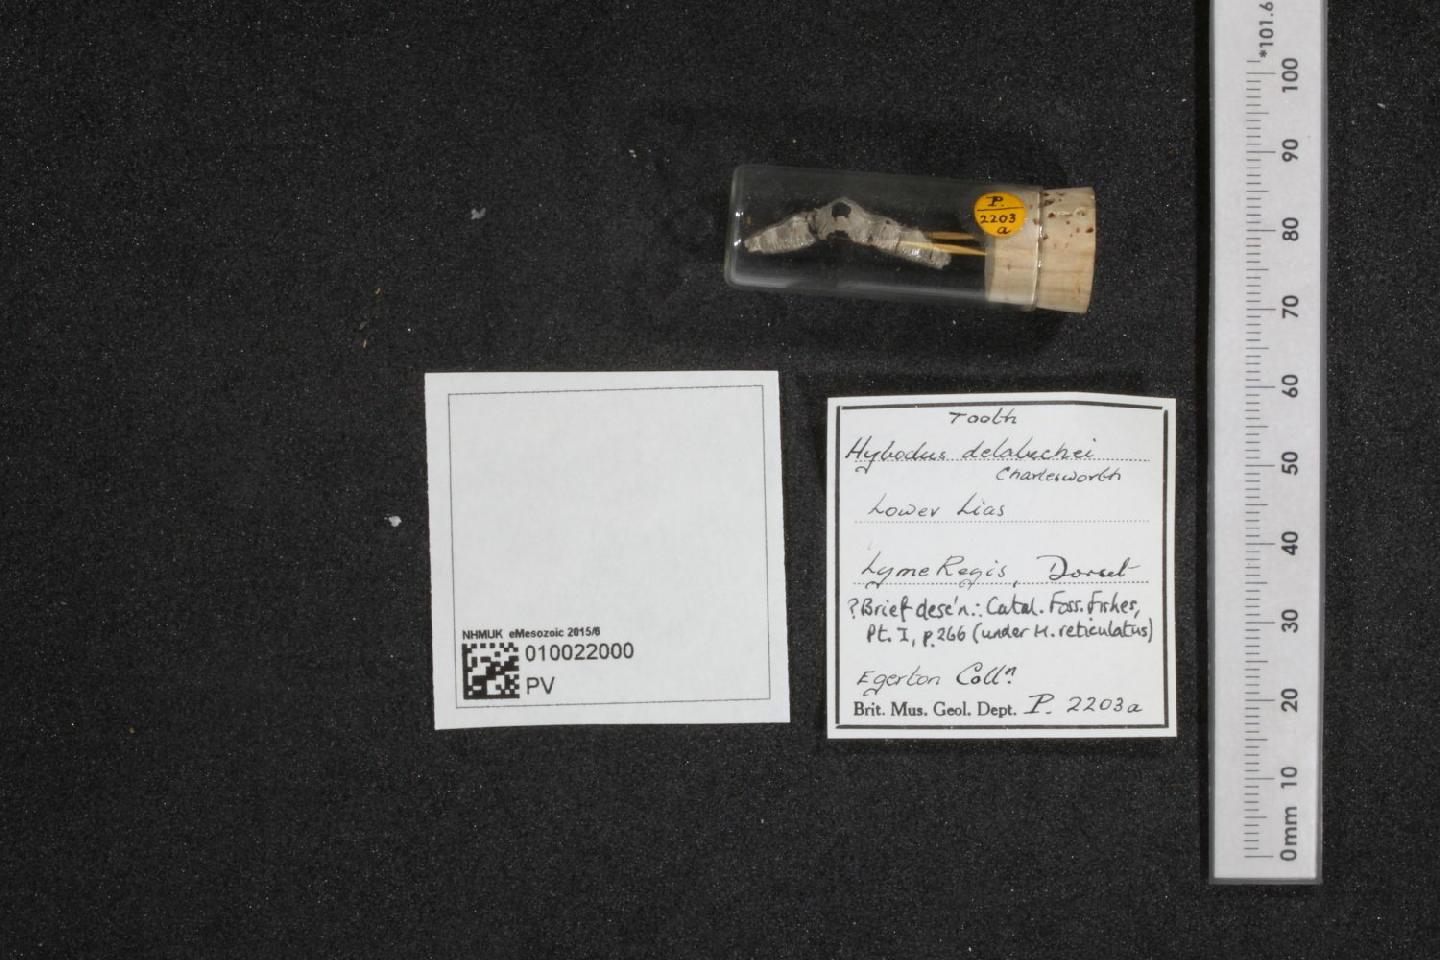 P.
2203
a
Tooth
Hybodus delabechei
Charlesworth
Lower Lias
Lyme Regis, Dorset
? Brief desc'n.: Catal. Foss. Fishes,
Pt. I, p.266 (under H. reticulatus)
Egerton Colln.
Brit. Mus. Geol. Dept. P. 2203a
NHMUK eMesozoic 2015/6
010022000
PV
*101.6
100
90
80
70
60
50
40
30
20
10
0mm